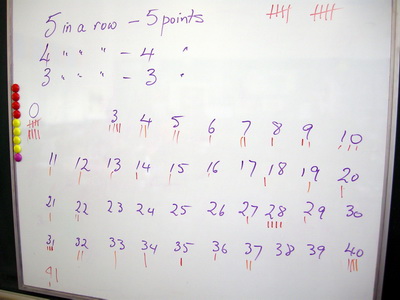 5 in a row - 5 points
4 " " " - 4 "
3 " " " - 3 "
0 3 4 5 6 7 8 9 10
11 12 13 14 15 16 17 18 19 20
21 22 23 24 25 26 27 28 29 30
31 32 33 34 35 36 37 38 39 40
41